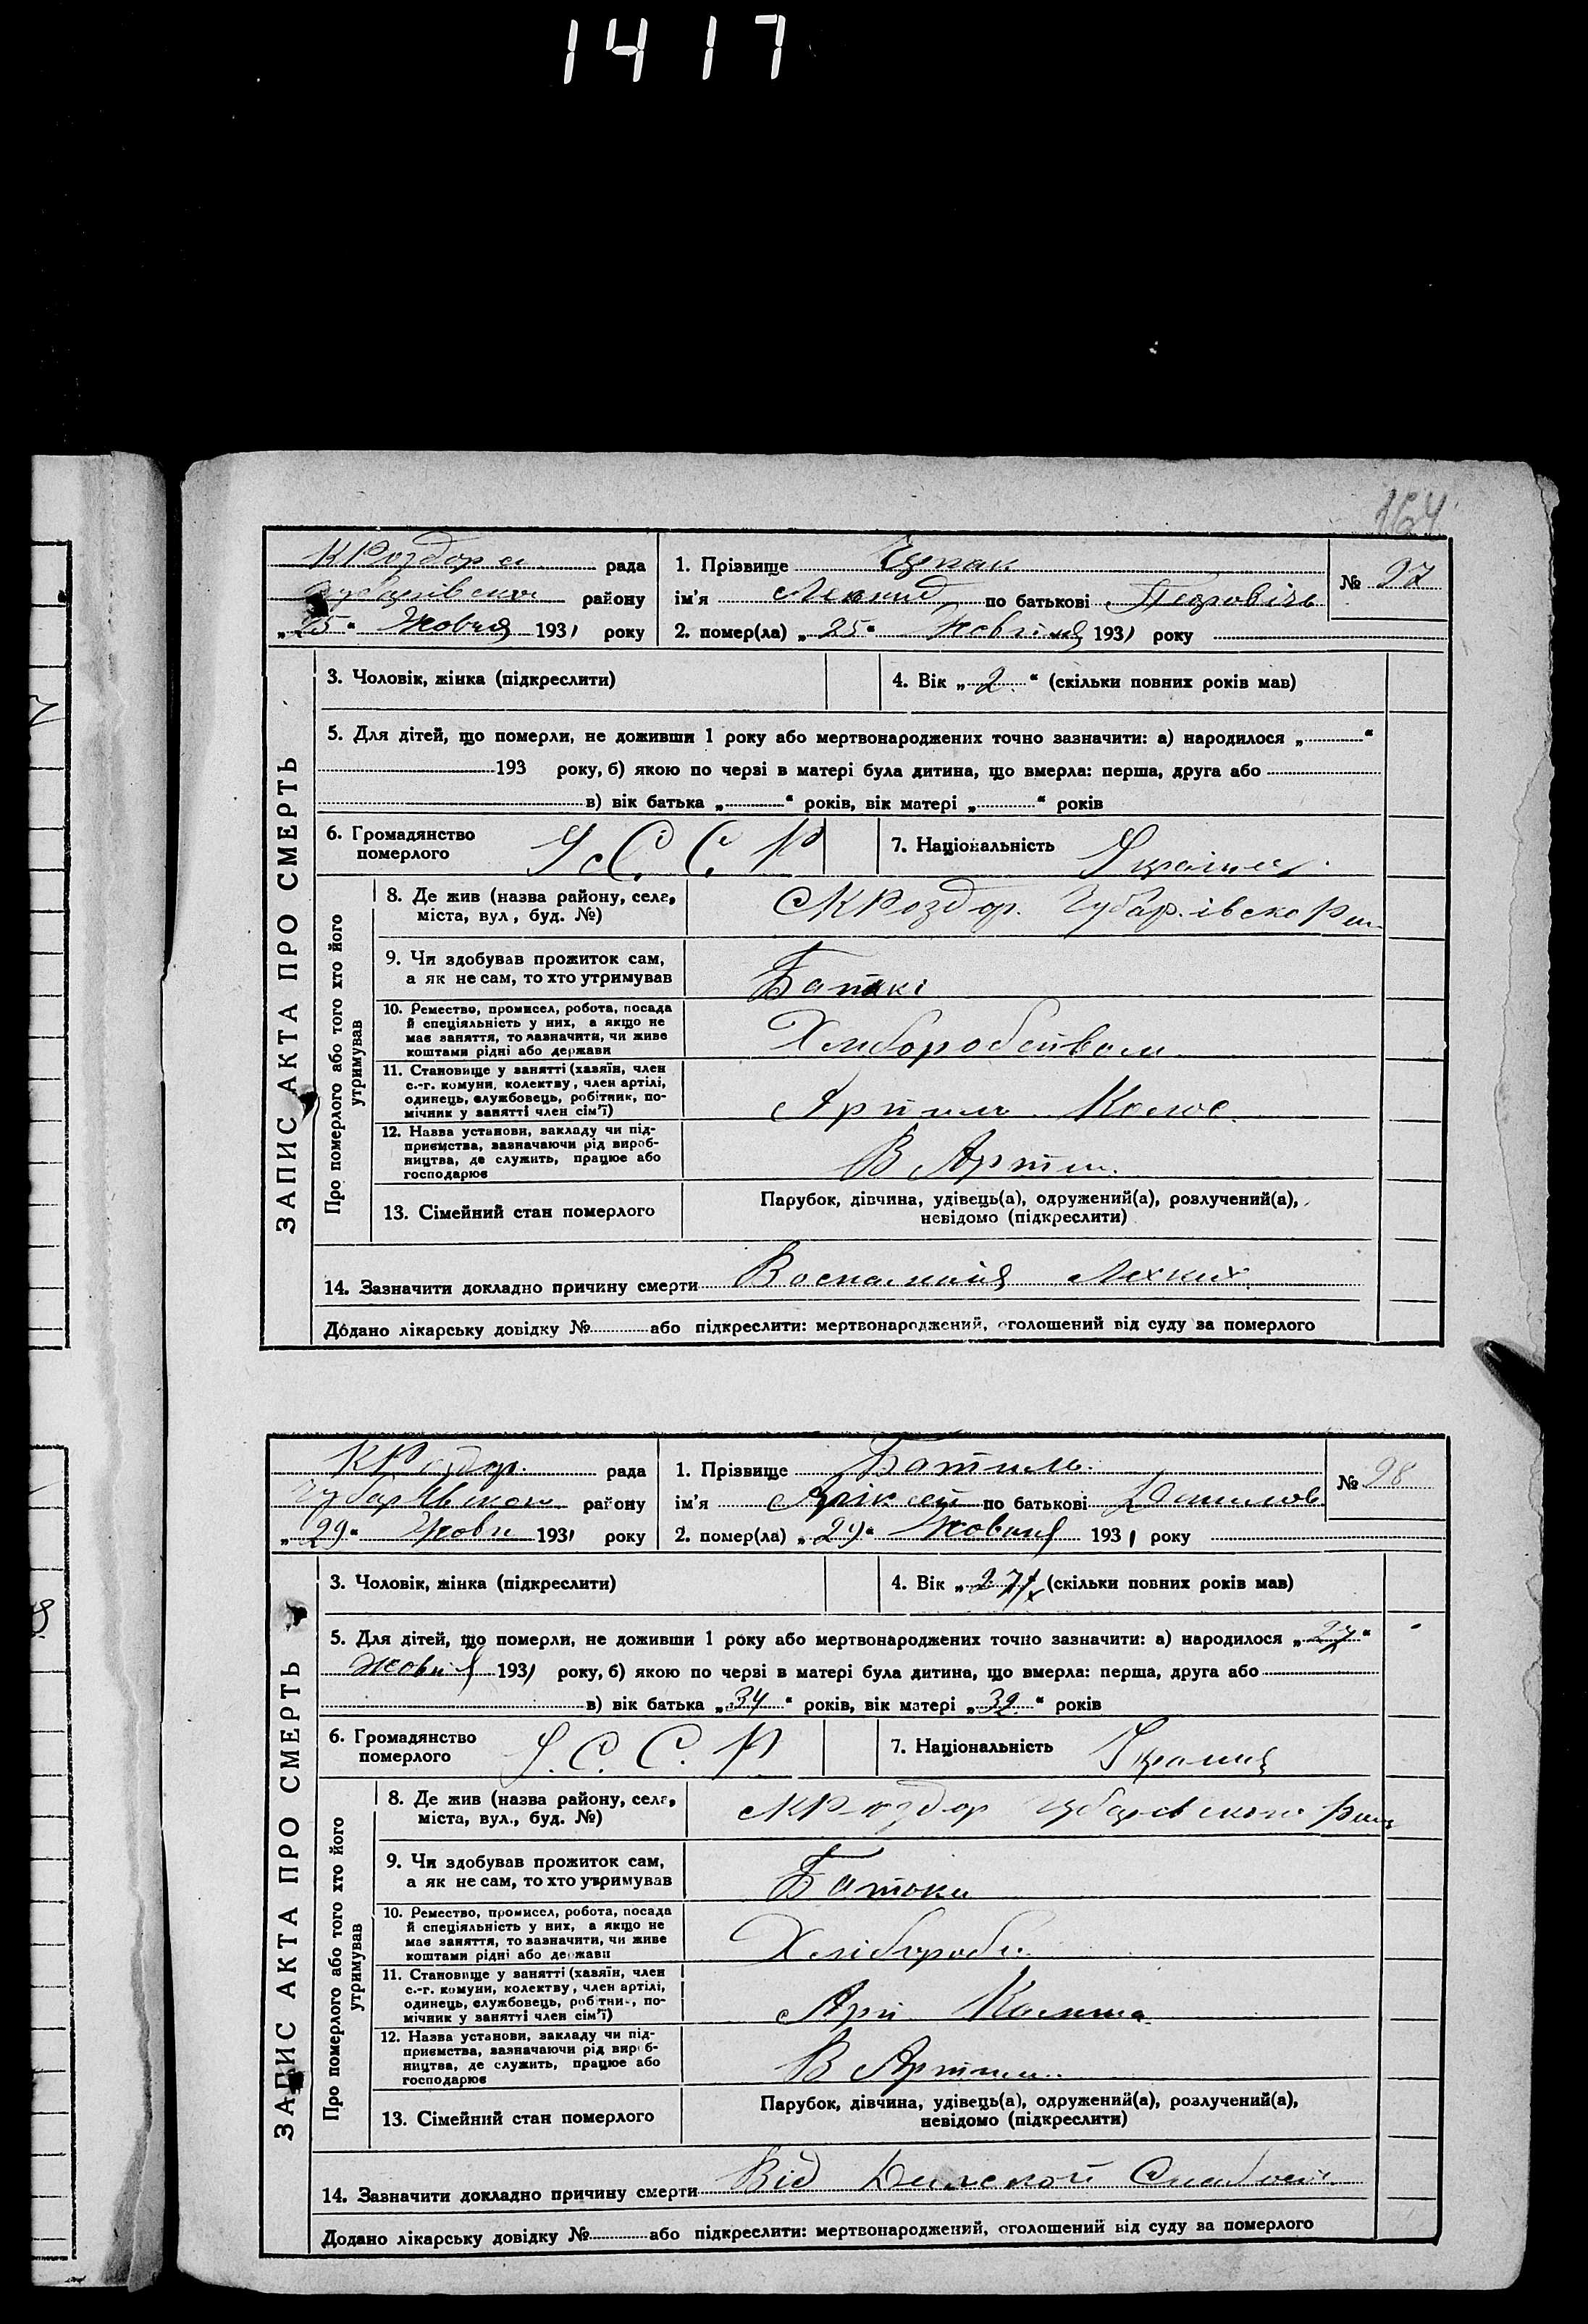 1417
164
К Роздор рада
району
„25“ Жовтня 1931 року
1. Прізвище Цупак
ім’я по батькові Петровічь
№ 27
2. помер(ла) „25“ Жовтня 1931 року
ЗАПИС АКТА ПРО СМЕРТЬ
3. Чоловік, жінка (підкреслити)
4. Вік „2“ (скільки повних років мав)
5. Для дітей, що померли, не доживши 1 року або мертвонароджених точно зазначити: а) народилося „ “
193 року, б) якою по черзі в матері була дитина, що вмерла: перша, друга або
в) вік батька „ “ років, вік матері „ “ років
6. Громадянство
померлого
У С С Р
7. Національність
Про померлого або того хто його
утримував
8. Де жив (назва району, села,
міста, вул, буд. №)
К Роздор. Чубар.івско
9. Чи здобував прожиток сам,
а як не сам, то хто утримував
Батькі
10. Ремество, промисел, робота, посада
й спеціяльність у них, а якщо не
має заняття, то зазначити, чи живе
коштами рідні або держави
11. Становище у занятті (хазяїн, член
с.-г. комуни, колективу, член артілі,
одинець, службовець, робітник, по-
мічник у занятті член сім’ї)
12. Назва установи, закладу чи під-
приємства, зазначаючи рід вироб-
ництва, де служить, працює або
господарює
В Артил.
13. Сімейний стан померлого
Парубок, дівчина, удівець(а), одружений(а), розлучений(а),
невідомо (підкреслити)
14. Зазначити докладно причину смерти Воспаления Лехких
Додано лікарську довідку № або підкреслити: мертвонароджений, оголошений від суду за померлого
К Роздор. рада
району
„29“ Жовт 1931 року
1. Прізвище
ім’я по батькові Данилов
№ 28
2. помер(ла) „29“ Жовтня 1931 року
ЗАПИС АКТА ПРО СМЕРТЬ
3. Чоловік, жінка (підкреслити)
4. Вік „ (скільки повних років мав)
5. Для дітей, що померли, не доживши 1 року або мертвонароджених точно зазначити: а) народилося „27“
Жовтня 1931 року, б) якою по черзі в матері була дитина, що вмерла: перша, друга або
в) вік батька „34“ років, вік матері „32“ років
6. Громадянство
померлого
У. С. С. Р
7. Національність
Про померлого або того хто його
утримував
8. Де жив (назва району, села,
міста, вул., буд. №)
К Роздор
9. Чи здобував прожиток сам,
а як не сам, то хто утримував
Батьки
10. Ремество, промисел, робота, посада
й спеціяльність у них, а якщо не
має заняття, то зазначити, чи живе
коштами рідні або держави
Хлібороб
11. Становище у занятті (хазяїн, член
с.-г. комуни, колективу, член артілі,
одинець, службовець, робітник, по-
мічник у занятті член сім’ї)
12. Назва установи, закладу чи під-
приємства, зазначаючи рід вироб-
ництва, де служить, працює або
господарює
В Артил.
13. Сімейний стан померлого
Парубок, дівчина, удівець(а), одружений(а), розлучений(а),
невідомо (підкреслити)
14. Зазначити докладно причину смерти Від
Додано лікарську довідку № або підкреслити: мертвонароджений, оголошений від суду за померлого